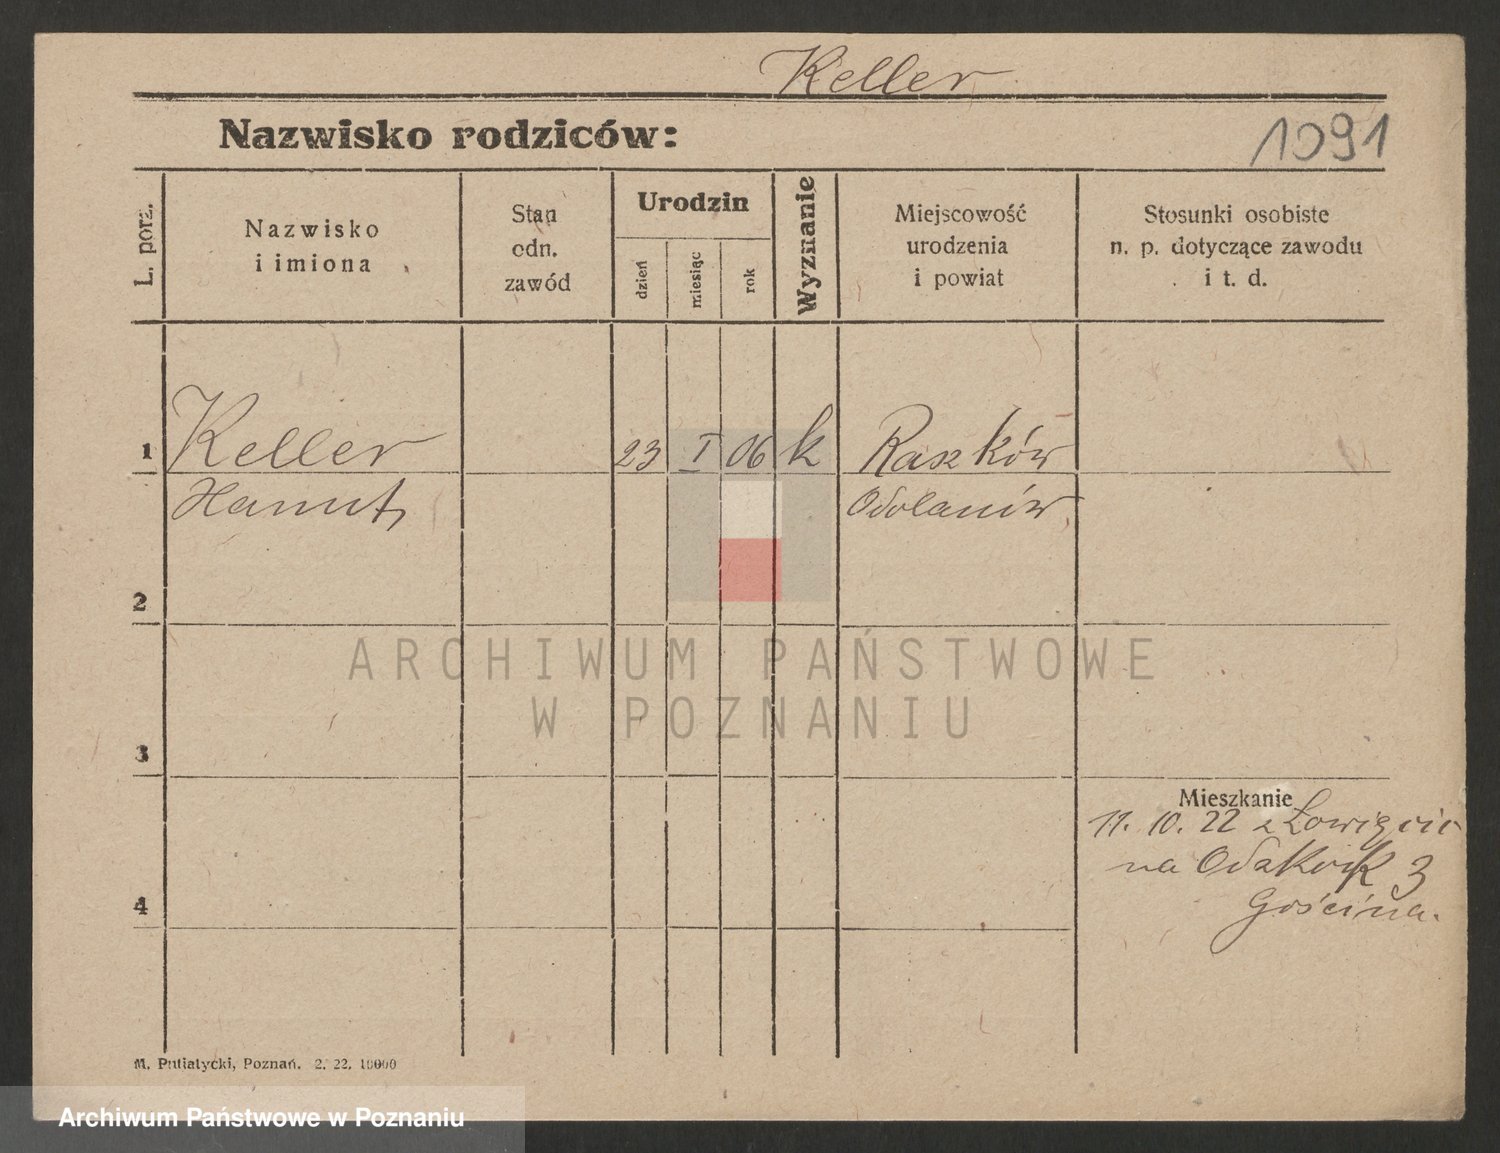 Keller
Nazwisko rodziców:
1091
L. porz.
Nazwisko
i imiona
Stan
odn.
zawód
Urodzin
dzień
miesiąc
rok
Wyznanie
Miejscowość
urodzenia
i powiat
Stosunki osobiste
n. p. dotyczące zawodu
i t. d.
1 Keller 23 I 06 k Raszków
Odolanów
2
3
4
Mieszkanie
11. 10. 22 z
na 3
Gościna.
M. Putiatycki, Poznań. 2. 22. 10000
ARCHIWUM PAŃSTWOWE
W POZNANIU
Archiwum Państwowe w Poznaniu